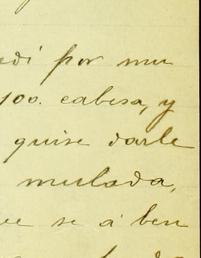 edi por mu
100. cabesa, y
quise darle
mulada,
se á ben